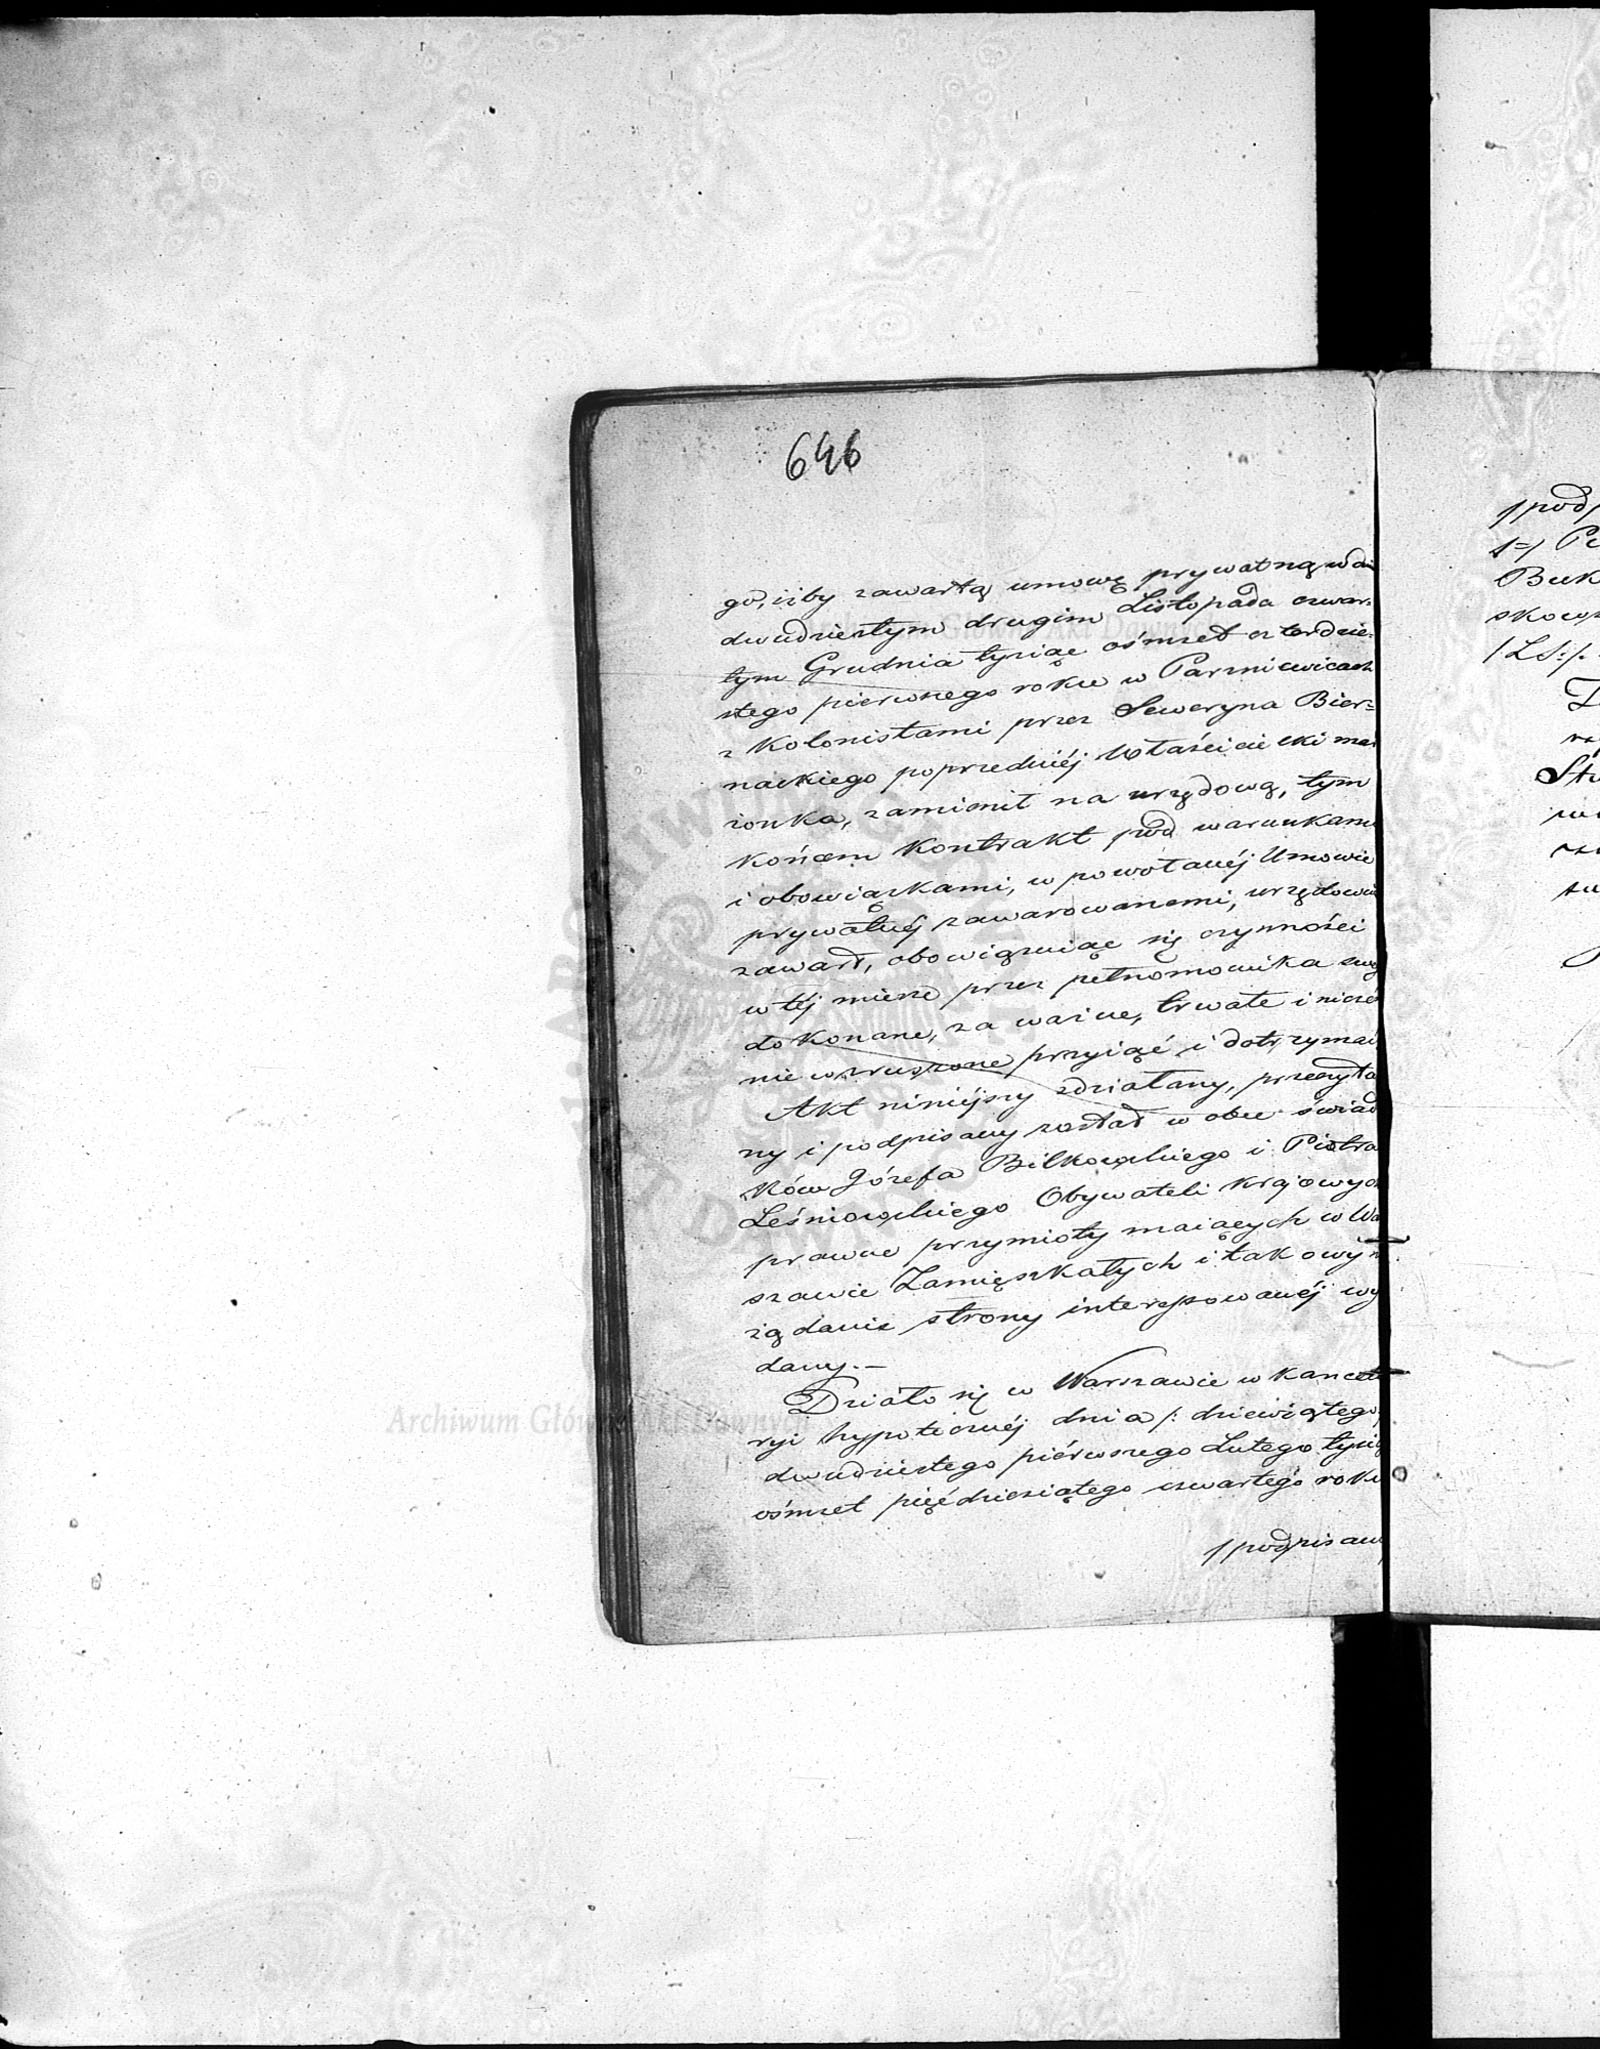 646
go, iżby zawartą umowę prywatną w dni
dwudziestym drugim Listopada czwar=
tym Grudnia tysiąc ośmset czterdzie=
stego pierwszego roku w Parzniewicach
z Kolonistami przez Seweryna Bier=
nackiego poprzedniéj Właścicielki mał
żonka, zamienił na urzędową, tym
końcem Kontrakt pod warunkami
i obowiązkami, w powołanéj Umowie
prywatnéj zawarowanemi, urzędownie
zawarł, obowiązuiąc się czynności
w téj mierze przez pełnomocnika swego
dokonane, za ważne, trwałe i niczém
niewzruszone przyiąć i dotrzymać
Akt niniéjszy zdziałany, przeczyta
ny i podpisany został w obec świad
ków Józefa Bilkowskiego i Piotra
Leśniowskiego Obywateli krajowych
prawne przymioty maiących w War
szawie Zamięszkałych i takowy na
żądanie strony interessowanéj wy
dany.—
Działo się w Warszawie w Kancella
ryi hypotecznéj dnia /: dziewiątego/
dwudziestego piérwszego Lutego tysiąc
ośmset pięćdziesiątego czwartego roku
/podpisany
/podp
1=/ Pi
Buk
skows
/:LS:/.
Archiwum Główne Akt Dawnych
Archiwum Główne Akt Dawnych